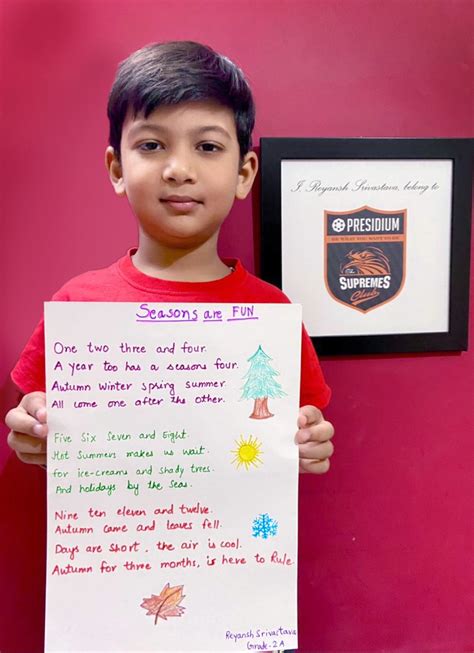 Seasons are FUN
One two three and four.
A year too has a seasons four.
Autumn winter spring summer.
All come one after the other.
Five Six Seven and Eight.
Hot Summers makes us wait.
for ice-creams and shady trees.
And holidays by the Seas.
Nine ten eleven and twelve.
Autumn came and leaves fell.
Days are short, the air is cool.
Autumn for three months, is here to Rule.
Reyansh Srivastava
Grade-2A
I, Reyansh Srivastava, belong to
PRESIDIUM
The
SUPREMES
Club